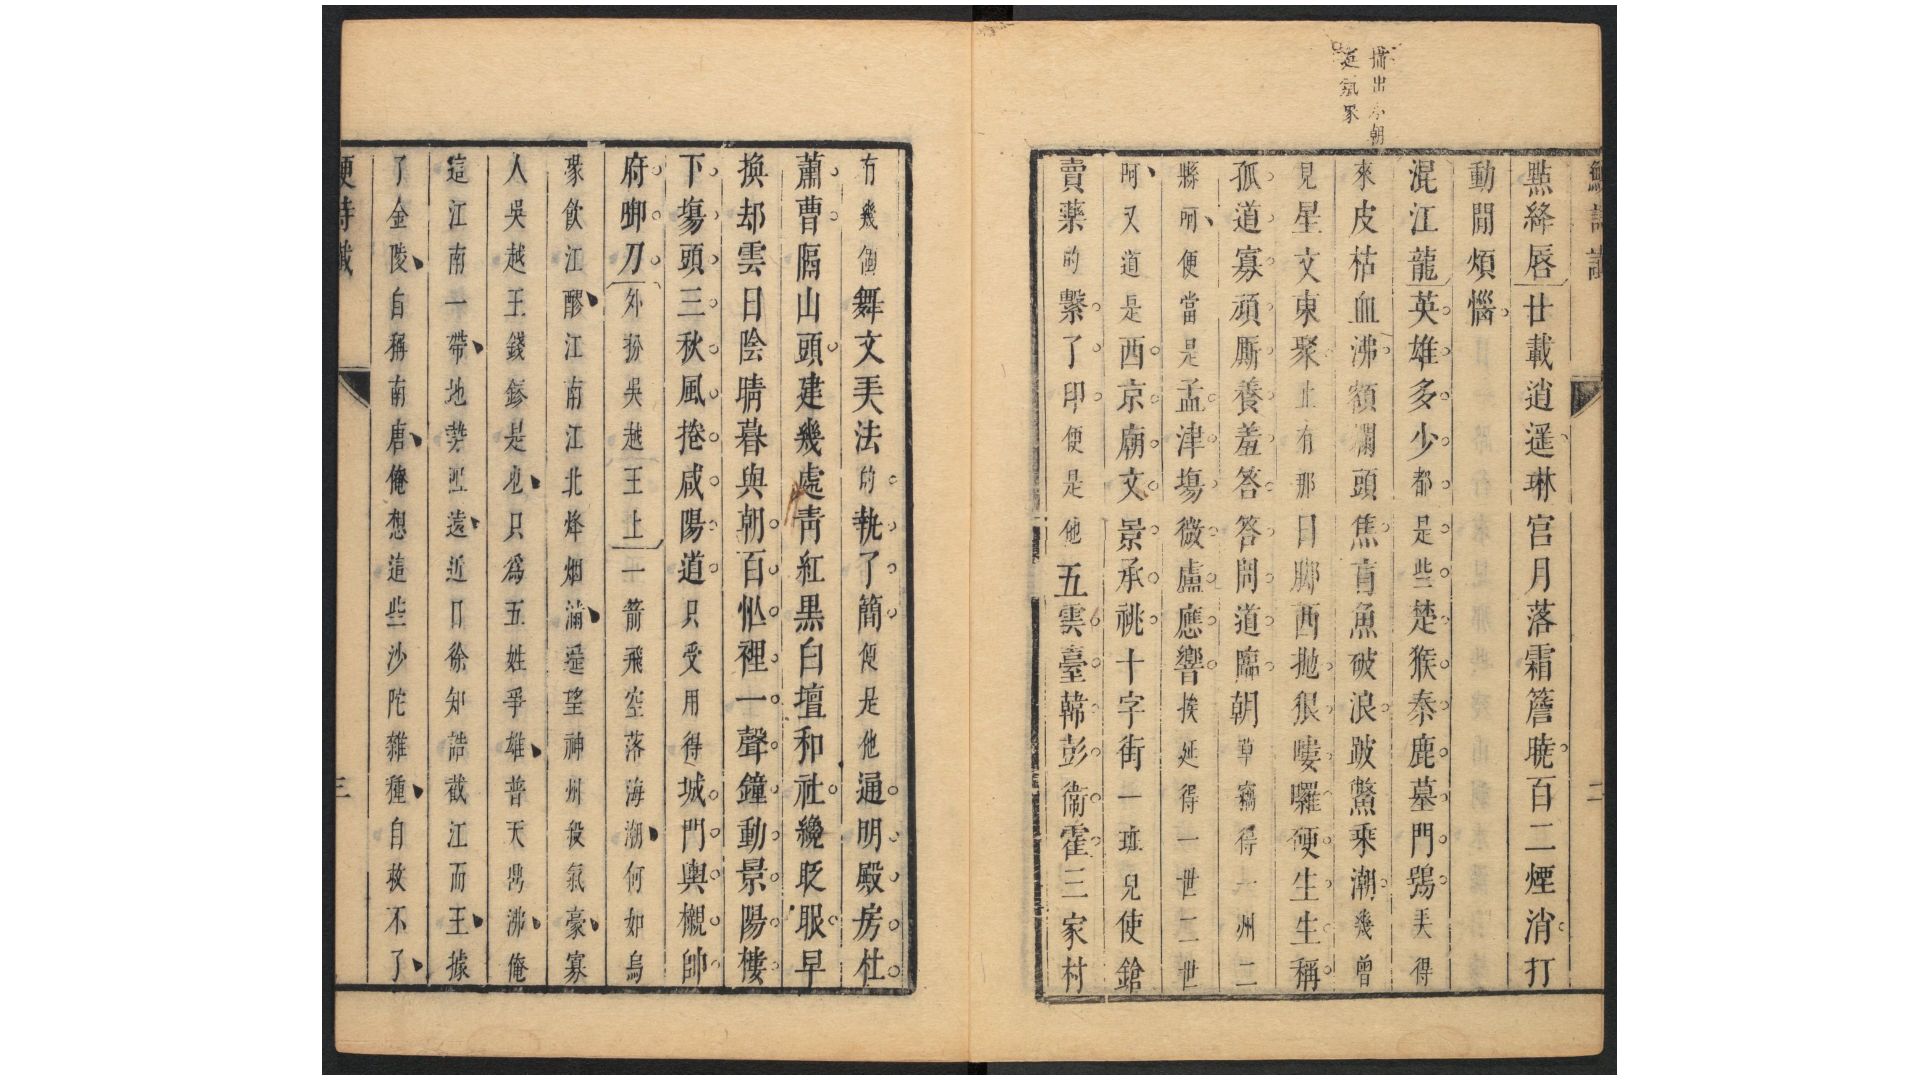 描出小朝
廷氣象
點絳唇廿載逍遥琳宫月落霜簷曉百二煙消打
動閒煩惱
混江龍英雄多少都是些楚猴秦鹿墓門鴞丟得
來皮枯血沸額爛頭焦盲魚破浪跛鱉乘潮幾曾
見星文東聚止有那日脚西拋狠嘍囉硬生生稱
孤道寡頑厮養羞答答問道臨朝草竊得一州二
縣呵便當是孟津塲微盧應響挨延得一世二世
阿又道是西京廟文景承祧十字街一班兒使鎗
賣藥的繫了印便是他五雲臺韓彭衛霍三家村
有幾個舞文丟法的執了簡便是他通明殿房杜
蕭曹隔山頭建幾處青紅黑白壇和社纔眨眼早
換却雲日陰晴暮與朝百忙裡一聲鐘動景陽樓
下塲頭三秋風捲咸陽道只受用得城門輿櫬帥
府脚刀外扮吳越王上一箭飛空落海潮何如烏
喙飲江醪江南江北烽烟滿遥望神州殺氣豪寡
人吳越王錢鏐是也只爲五姓爭雄普天鼎沸俺
這江南一帶地勢窵遠近日徐知誥截江而王據
了金陵自稱南唐俺想這些沙陀雜種自救不了
二
三